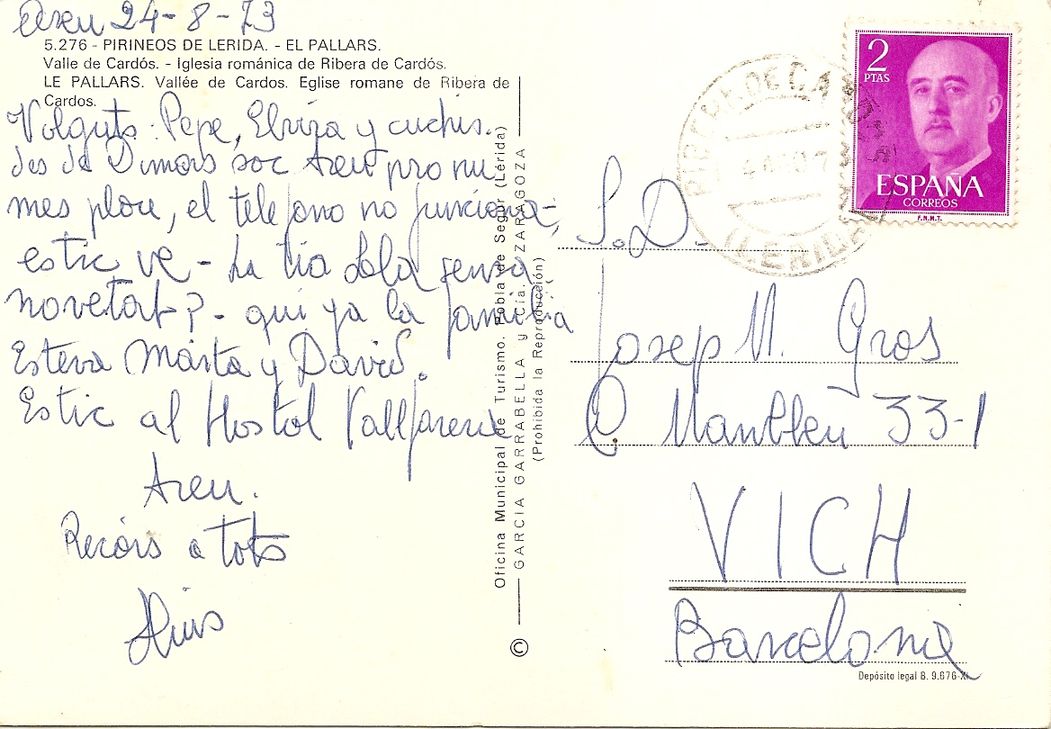 Areu 24-8-73
5.276 - PIRINEOS DE LERIDA. - EL PALLARS.
Valle de Cardós. - Iglesia románica de Ribera de Cardós.
LE PALLARS. Vallée de Cardos. Eglise romane de Ribera de
Cardos.
Volguts: Pepe, Elvira y cuchis.
des de Dimars soc Areu pro nu
mes plou, el telefono no funciona,
estic ve - La tia Lola sense
novetat? - qui ya la familia
Esteva Marta y David.
Estic al Hostol Vallfarera
Areu.
Recors a tots
Lluis
Oficina Municipal de Turismo. Pobla de Segur (Lérida)
© GARCIA GARRABELLA y Cía. ZARAGOZA
(Prohibida la Reproducción)
2
PTAS
ESPAÑA
CORREOS
F.N.M.T.
RIBERA DE CARDOS
(LERIDA)
S.D.
Josep M. Gros
C. Manlleu 33-1
VICH
Barcelona
Depósito legal B. 9.676-XI